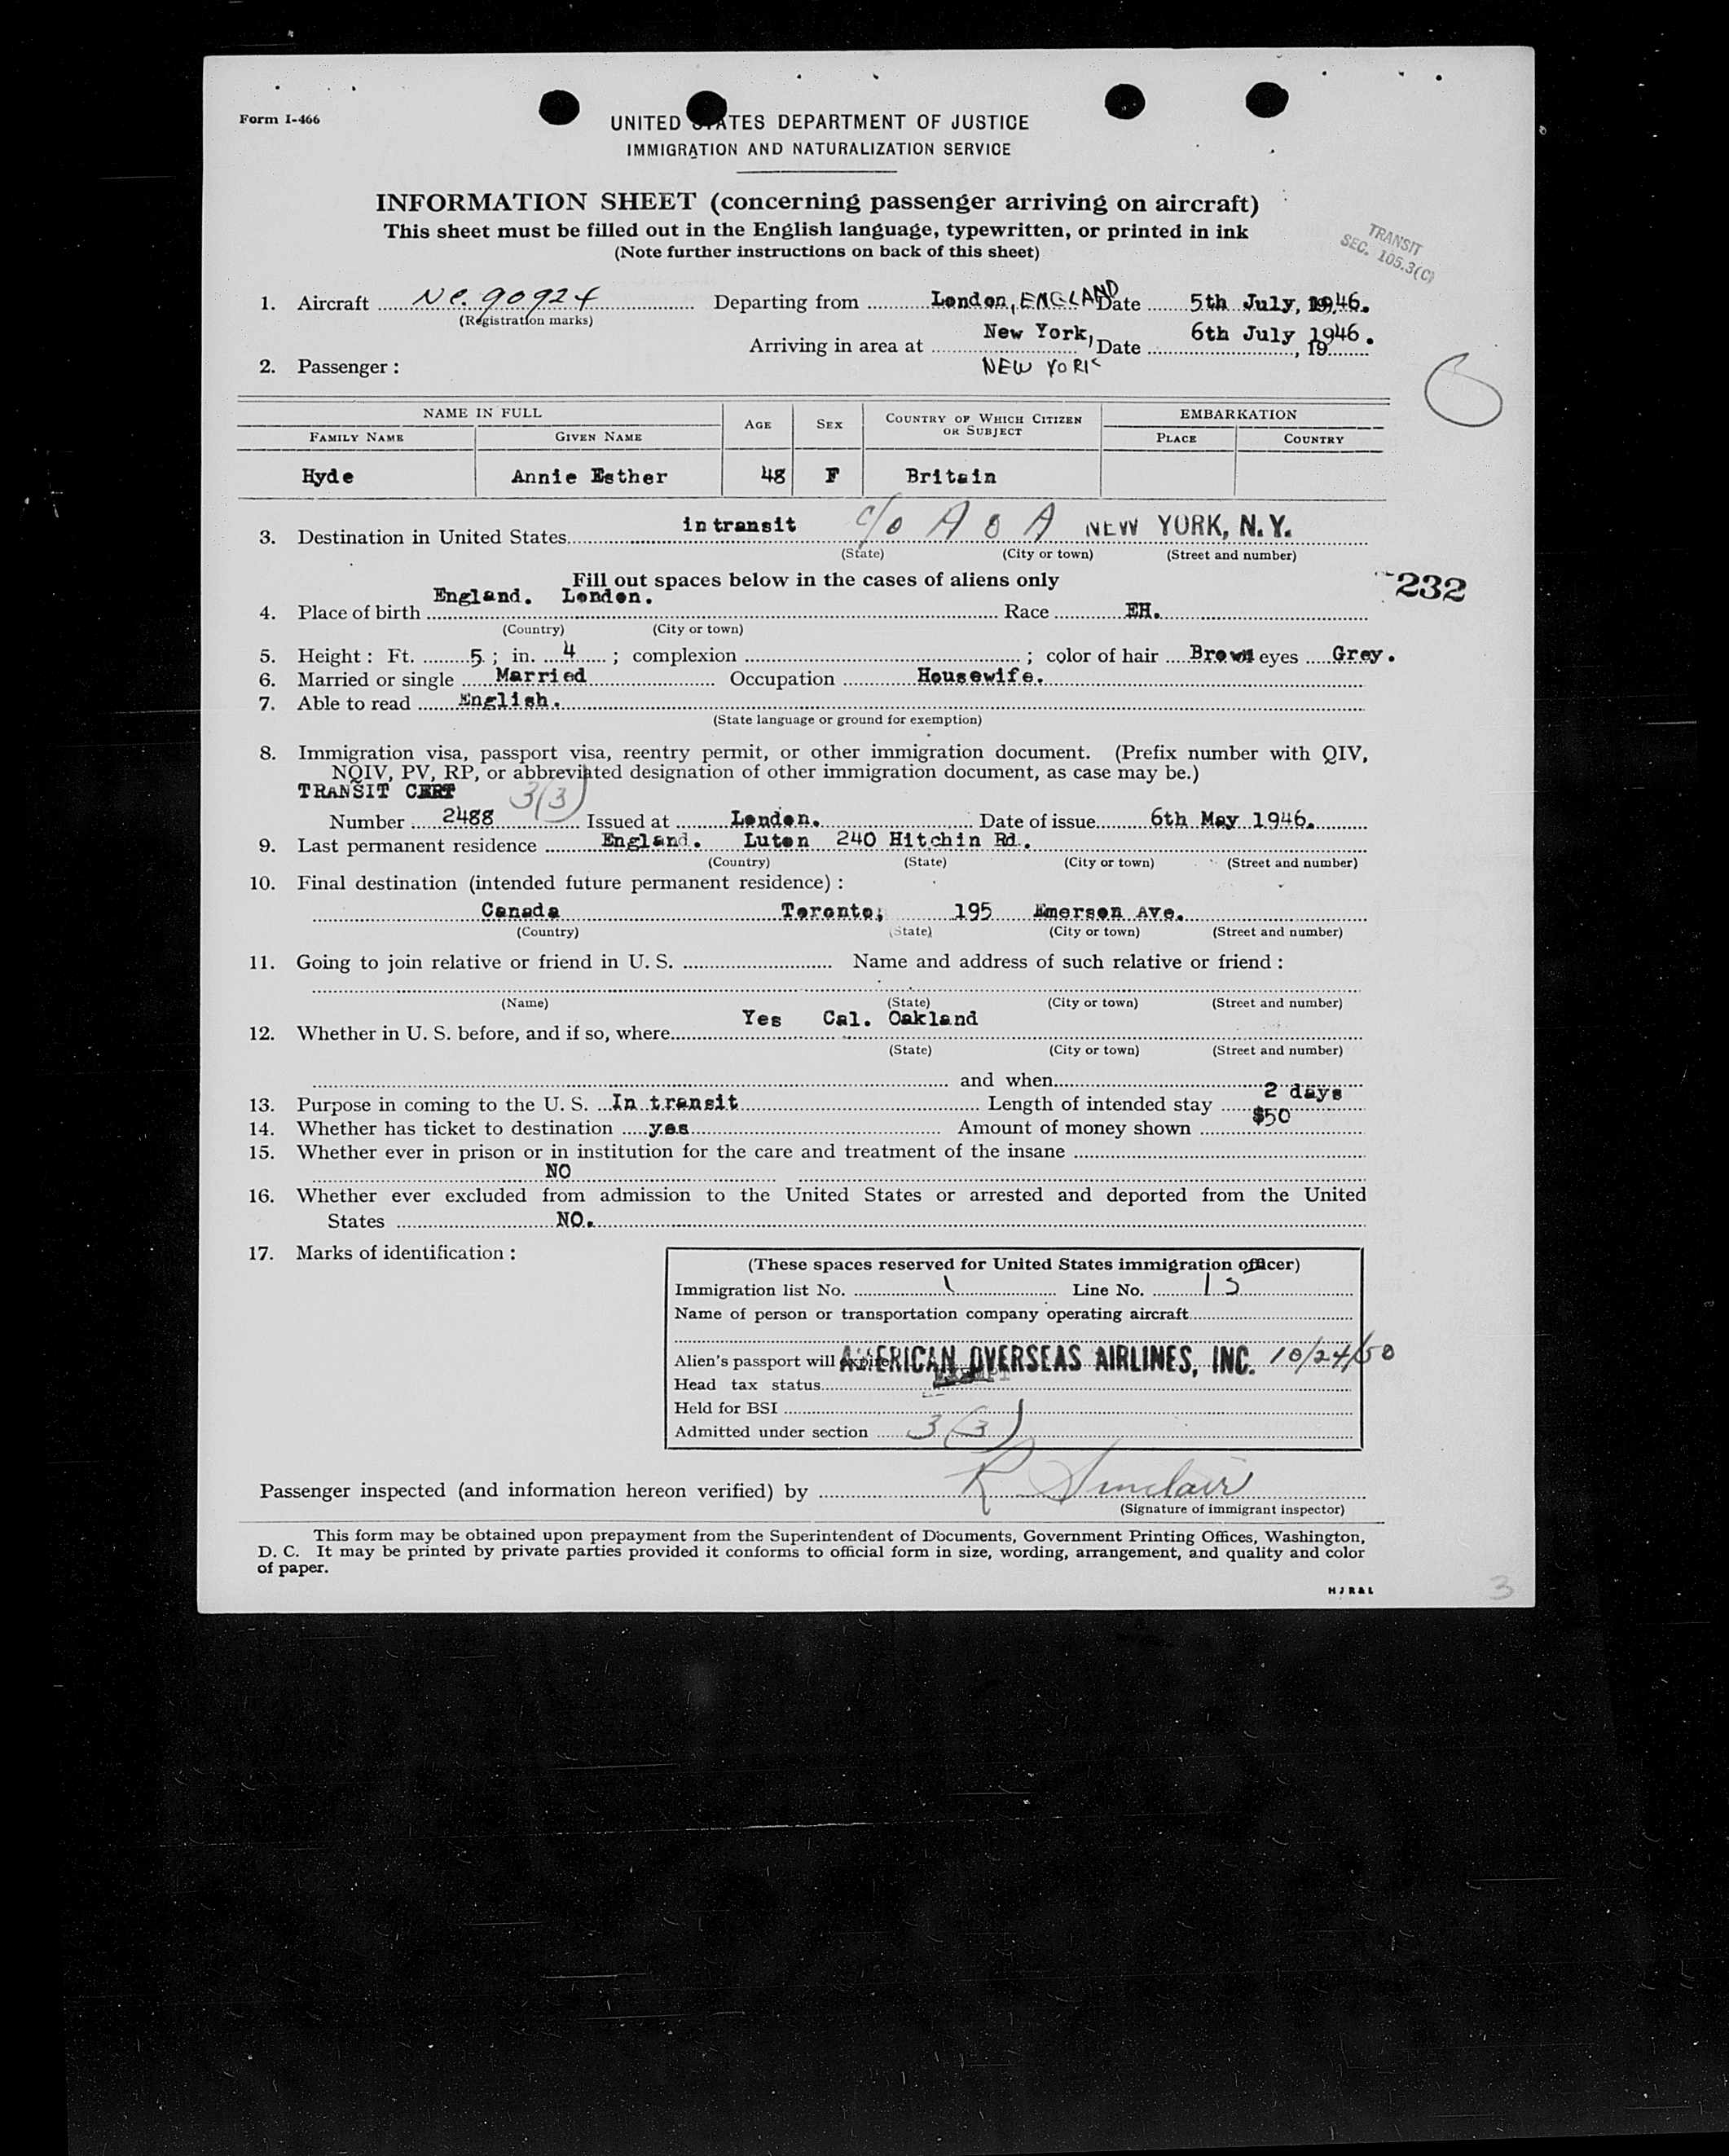 Form I-466
UNITED STATES DEPARTMENT OF JUSTICE
IMMIGRATION AND NATURALIZATION SERVICE
INFORMATION SHEET (concerning passenger arriving on aircraft)
This sheet must be filled out in the English language, typewritten, or printed in ink
(Note further instructions on back of this sheet)
TRANSIT
SEC. 105.3(C)
1. Aircraft Nc. 90924 Departing from London, ENGLAND Date 5th July, 1946.
(Registration marks)
Arriving in area at New York, Date 6th July 1946. , 19
NEW YORK
2. Passenger :
NAME IN FULL AGE SEX COUNTRY OF WHICH CITIZEN OR SUBJECT EMBARKATION
FAMILY NAME GIVEN NAME PLACE COUNTRY
Hyde Annie Esther 48 F Britain
3. Destination in United States in transit c/o A O A NEW YORK, N.Y.
(State) (City or town) (Street and number)
Fill out spaces below in the cases of aliens only
232
4. Place of birth England. London. Race EH.
(Country) (City or town)
5. Height : Ft. 5 ; in. 4 ; complexion ; color of hair Brown eyes Grey.
6. Married or single Married Occupation Housewife.
7. Able to read English.
(State language or ground for exemption)
8. Immigration visa, passport visa, reentry permit, or other immigration document. (Prefix number with QIV,
NQIV, PV, RP, or abbreviated designation of other immigration document, as case may be.)
TRANSIT CERT 3(3)
Number 2488 Issued at London. Date of issue 6th May 1946.
9. Last permanent residence England. Luton 240 Hitchin Rd.
(Country) (State) (City or town) (Street and number)
10. Final destination (intended future permanent residence) :
Canada Toronto, 195 Emerson Ave.
(Country) (State) (City or town) (Street and number)
11. Going to join relative or friend in U. S. Name and address of such relative or friend :
(Name) (State) (City or town) (Street and number)
12. Whether in U. S. before, and if so, where Yes Cal. Oakland
(State) (City or town) (Street and number)
and when
13. Purpose in coming to the U. S. In transit Length of intended stay 2 days
14. Whether has ticket to destination yes Amount of money shown $50
15. Whether ever in prison or in institution for the care and treatment of the insane
NO
16. Whether ever excluded from admission to the United States or arrested and deported from the United
States NO.
17. Marks of identification :
(These spaces reserved for United States immigration officer)
Immigration list No. 1 Line No. 15
Name of person or transportation company operating aircraft
Alien's passport will expire AMERICAN OVERSEAS AIRLINES, INC. 10/24/50
Head tax status EXEMPT
Held for BSI
Admitted under section 3(3)
Passenger inspected (and information hereon verified) by R Sinclair
(Signature of immigrant inspector)
This form may be obtained upon prepayment from the Superintendent of Documents, Government Printing Offices, Washington,
D. C. It may be printed by private parties provided it conforms to official form in size, wording, arrangement, and quality and color
of paper.
HJR&L
3